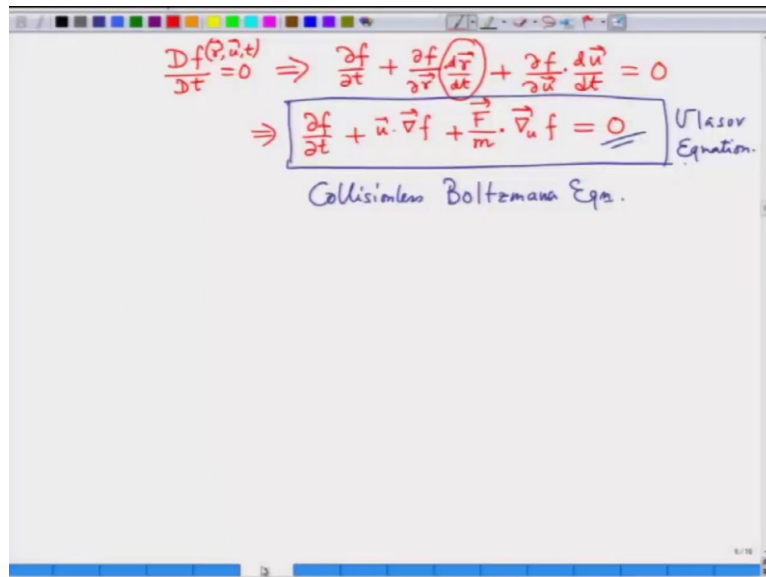 Df(r⃗,u⃗,t)/Dt = 0 ⇒ ∂f/∂t + ∂f/∂r⃗ dr⃗/dt + ∂f/∂u⃗ · du⃗/dt = 0
⇒ ∂f/∂t + u⃗ · ∇⃗f + F⃗/m · ∇⃗ᵤ f = 0 Vlasov Equation.
Collisionless Boltzmann Eqn.